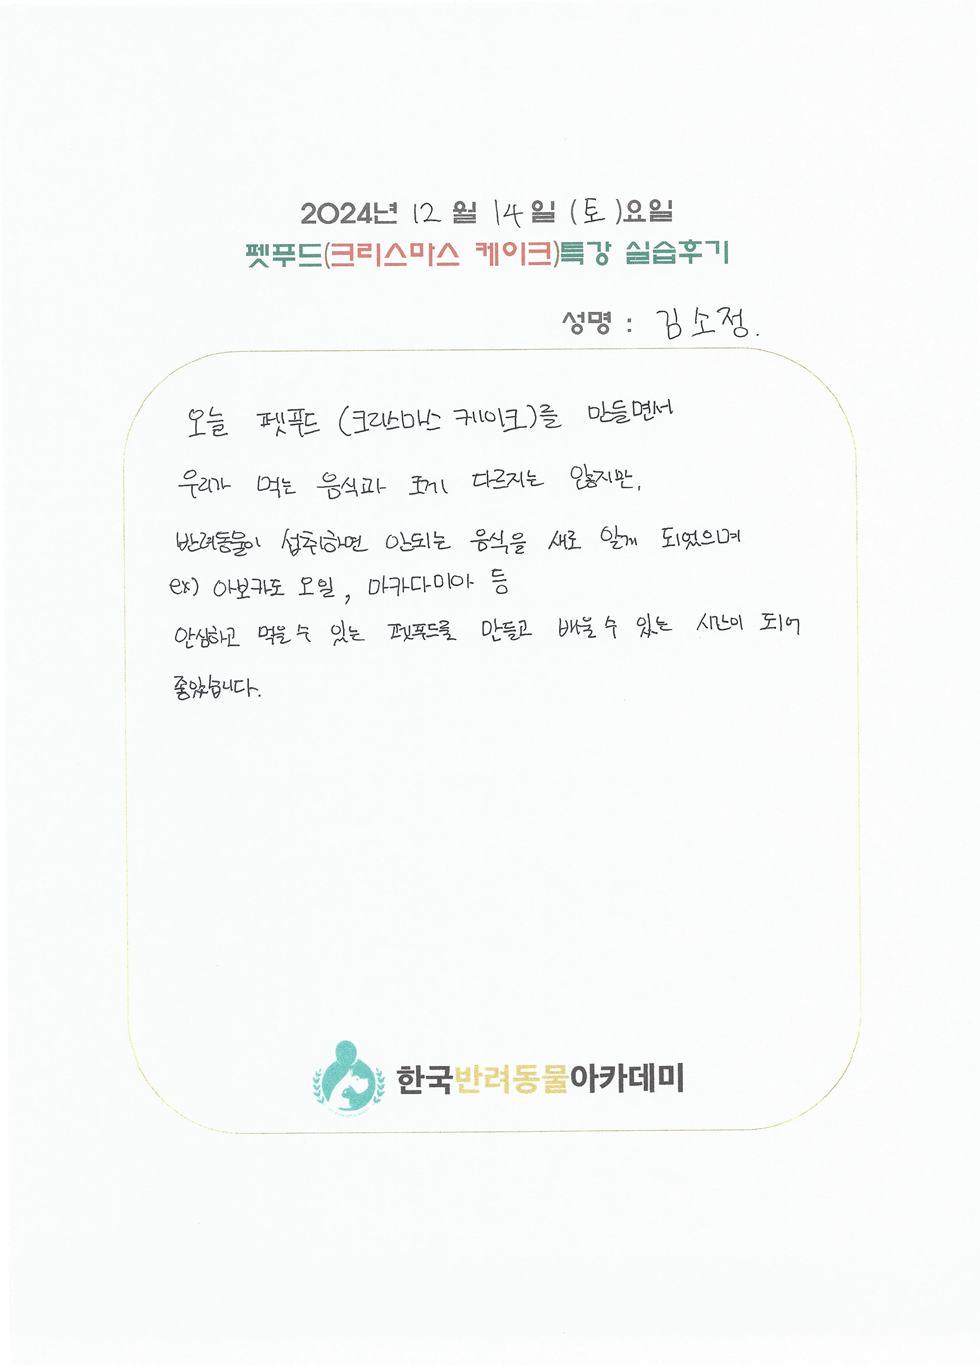 2024년 12월 14일 (토)요일
펫푸드(크리스마스 케이크)특강 실습후기
성명 : 김소정.
오늘 펫푸드 (크리스마스 케이크)를 만들면서
우리가 먹는 음식과 크게 다르지는 않지만,
반려동물이 섭취하면 안되는 음식을 새로 알게 되었으며
ex) 아보카도 오일, 마카다미아 등
안심하고 먹을 수 있는 펫푸드를 만들고 배울 수 있는 시간이 되어
좋았습니다.
한국반려동물아카데미